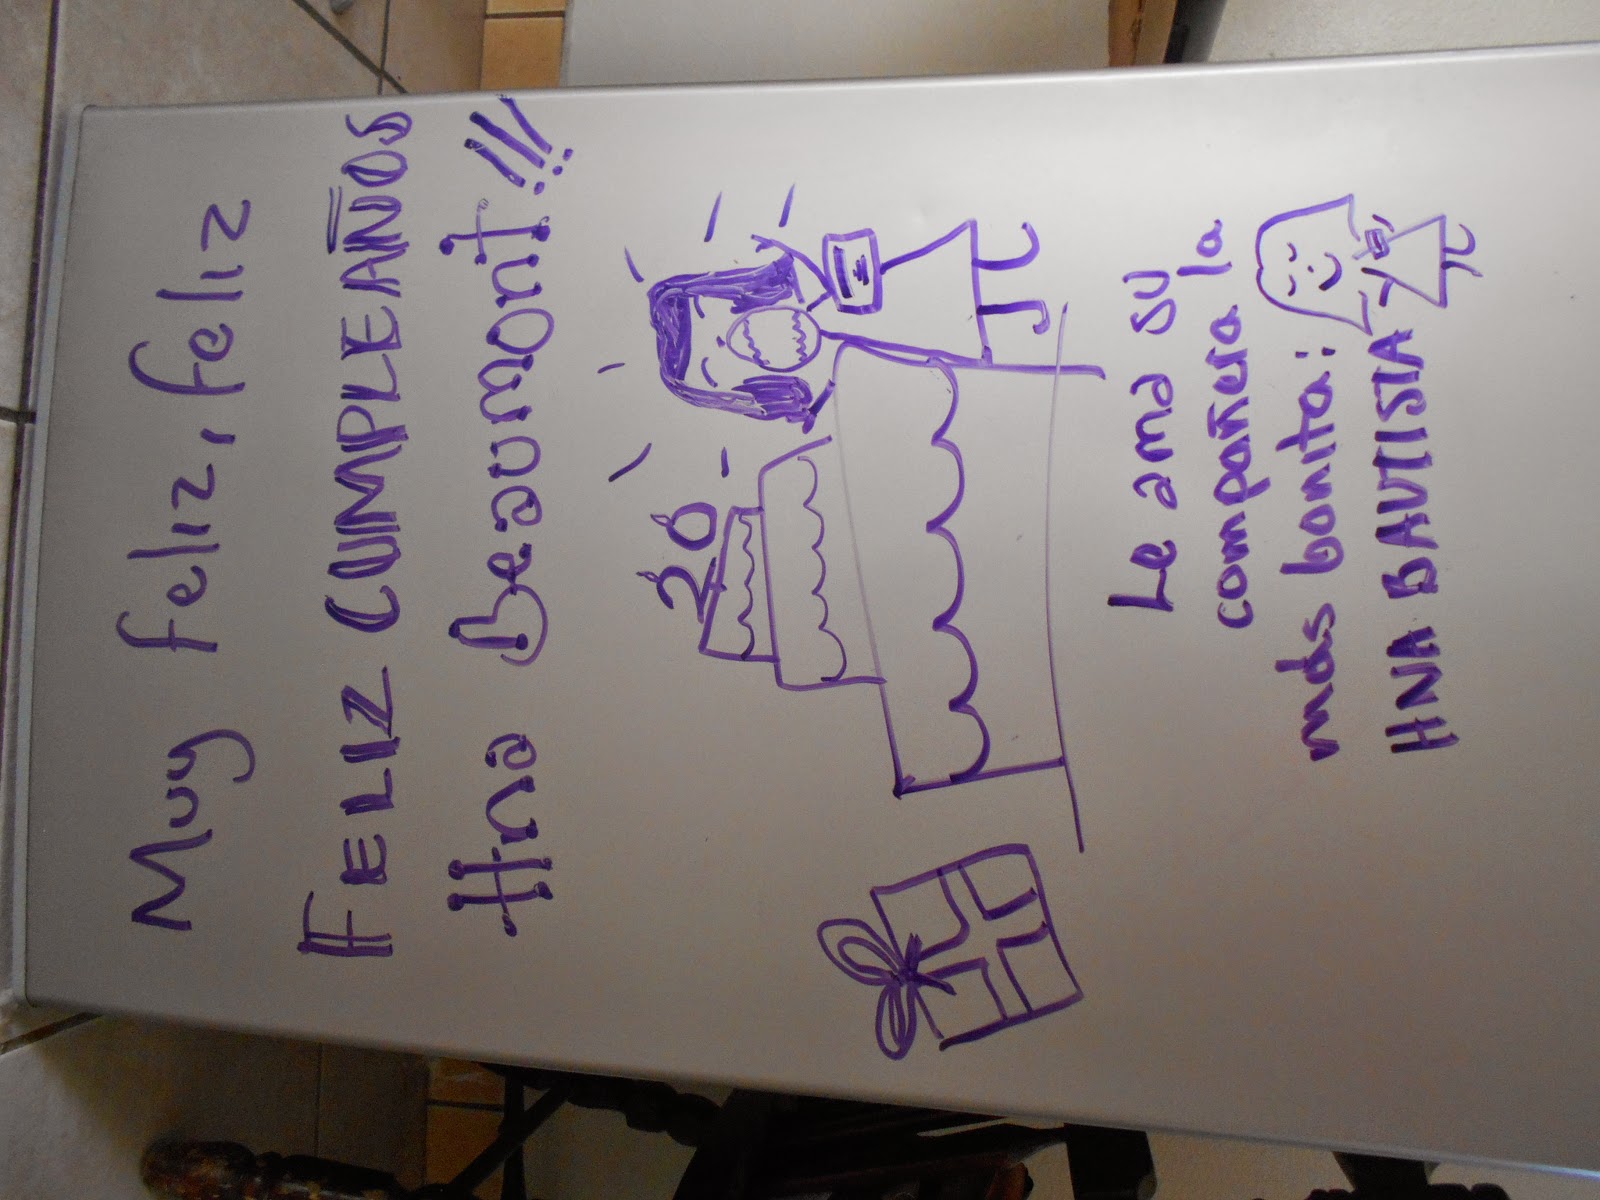 Muy feliz, feliz
FELIZ CUMPLEAÑOS
Hna Beaumont!!!
20
Le ama su
compañera la
más bonita:
HNA BAUTISTA